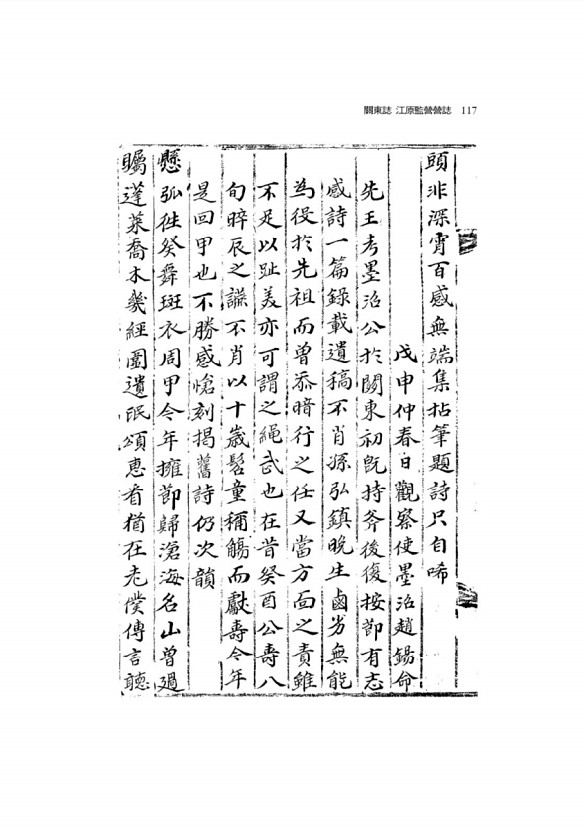 關東誌 江原監營營誌 117
頭非深宵百感無端集拈筆題詩只自唏
戊申仲春日觀察使墨沼趙錫命
先王考墨沼公於關東初旣持斧後復按節有志
感詩一篇錄載遺稿不肖孫弘鎮晩生鹵劣無能
為役於先祖而曾忝暗行之任又當方面之責雖
不足以趾美亦可謂之繩武也在昔癸酉公壽八
旬晬辰之讌不肖以十歲髫童稱觴而獻壽今年
是回甲也不勝感愴刻揭舊詩仍次韻
懸弧徃癸舞斑衣周甲今年擁節歸滄海名山曾過
矚蓬萊喬木幾經圍遺氓頌惠看猶在老僕傳言聽